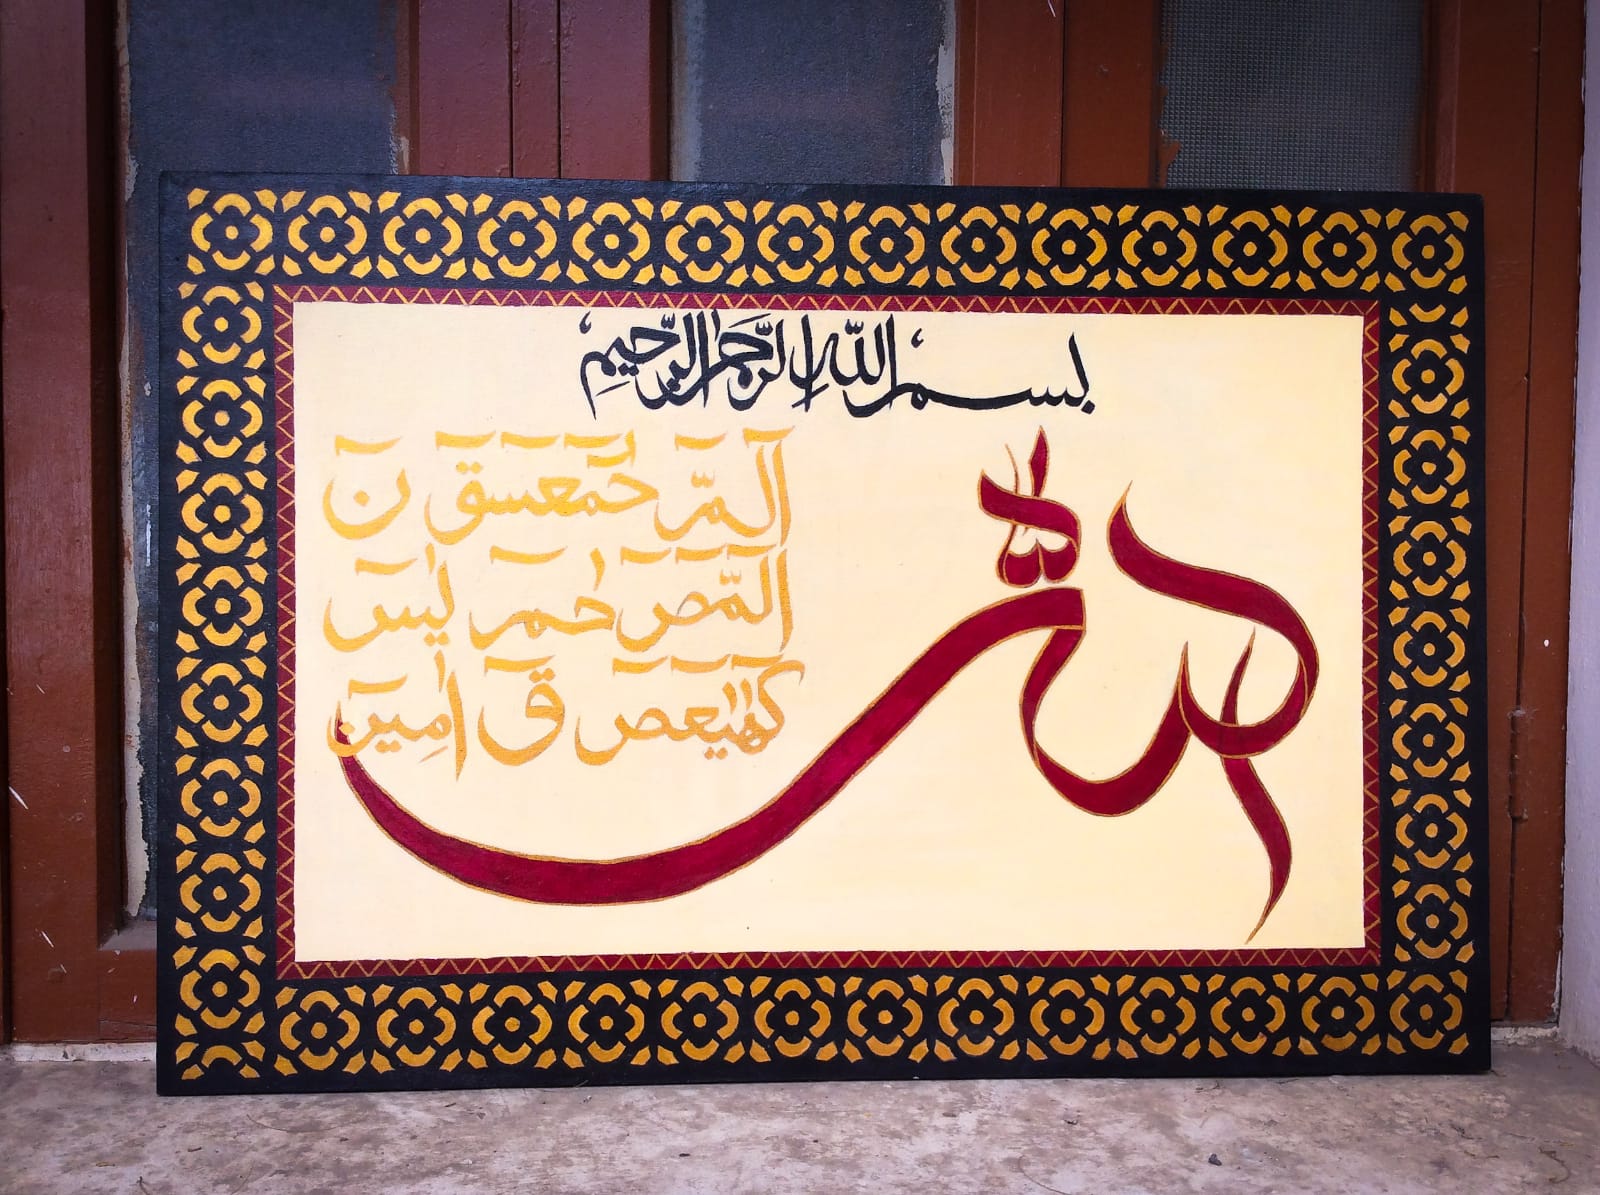 بسم اللّٰهِ الرَّحمٰنِ الرَّحِيمِ
الٓمّٓ حٰمٓعٓسٓقٓ نٓ
الٓمّٓصٓ حٰمٓ يٰسٓ
كٓهٰيٰعٓصٓ قٓ اٰمِيٓن